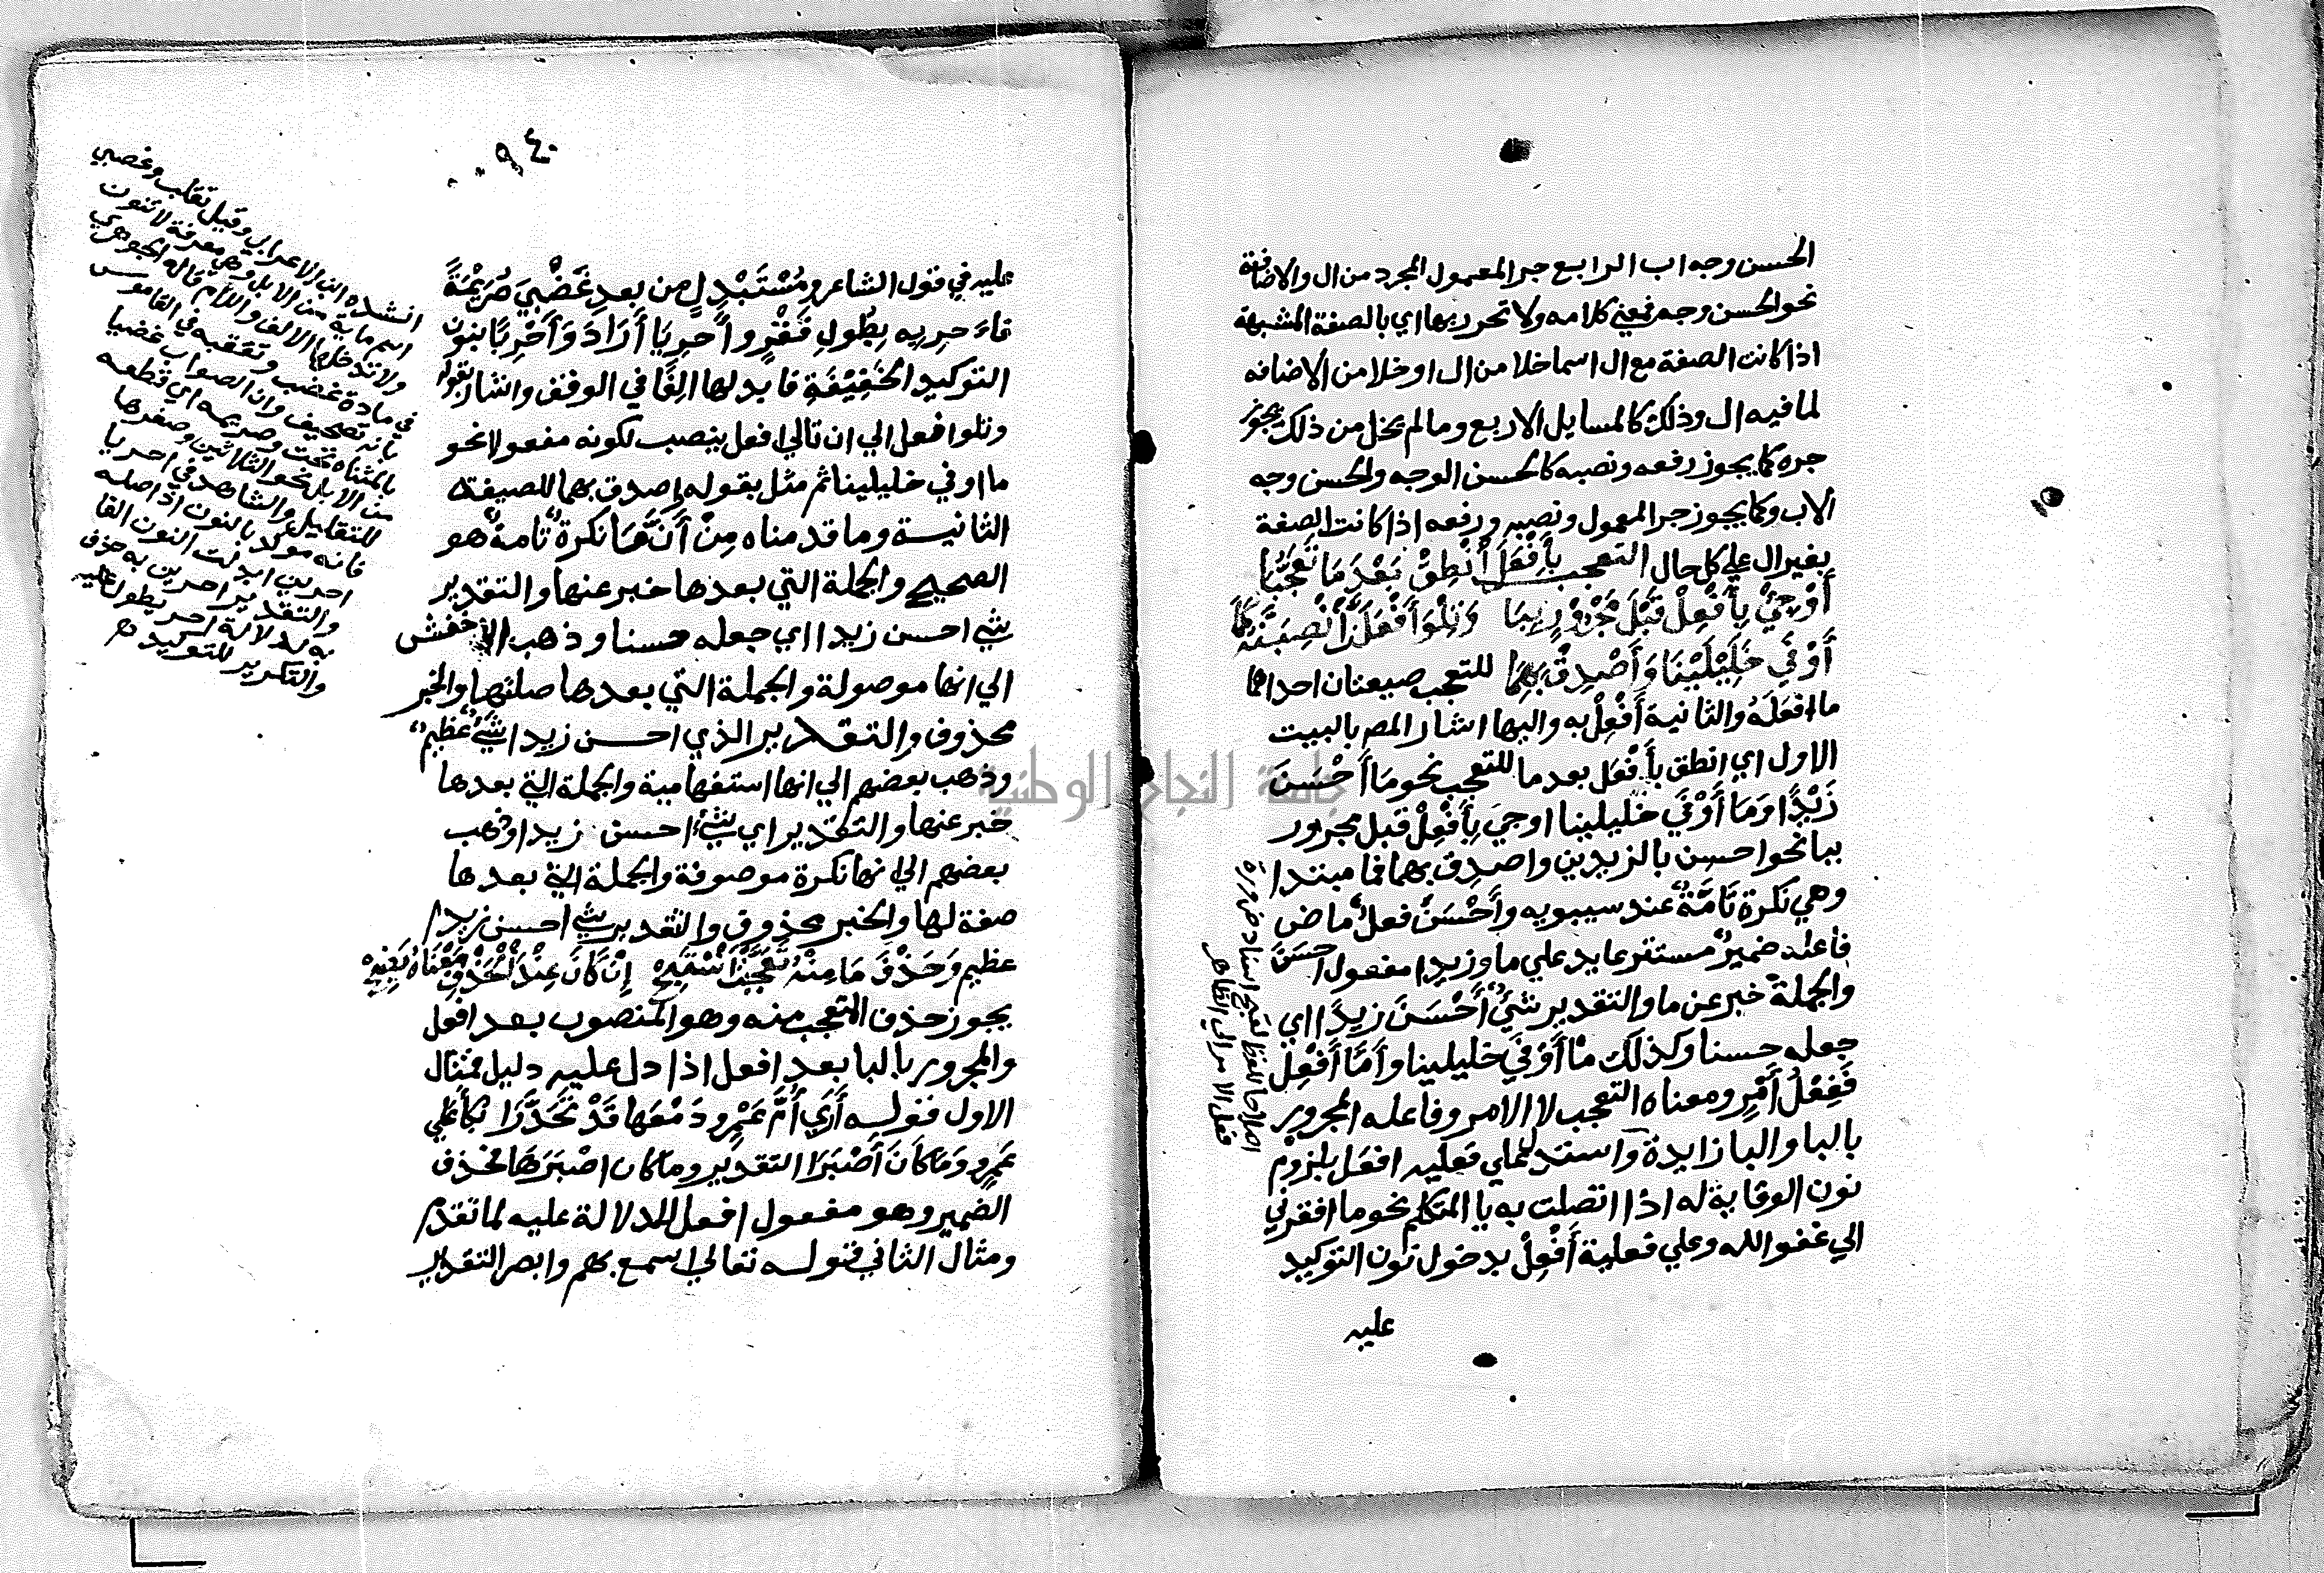 الحسن وجه اب الرابع جر المعمول المجرد من ال والاضافة
نحو الحسن وجه فمعني كلامه ولا تجرر بها اي بالصفة المشبهة
اذا كانت الصفة مع ال اسما خلا من ال او خلا من الاضافه
لما فيه ال وذلك كالمسايل الاربع وما لم يخل من ذلك يجوز
جره كما يجوز رفعه ونصبه كالحسن الوجه والحسن وجه
الاب وكما يجوز جر المعمول ونصبه ورفعه اذا كانت الصفة
بغير ال علي كل حال التعجب بِأَفْعَلَ انْطِقْ بَعْدَ مَا تَعَجُّبَا
أَوْ جِئْ بِأَفْعِلْ قَبْلَ مَجْرُورٍ بِبَا وَتِلْوَ أَفْعَلَ انْصِبَنَّهُ كَمَا
أَوْفَي خَلِيلَيْنَا وَأَصْدِقْ بِهِمَا للتعجب صيغتان احداهما
ما افعَلَهُ والثانية أَفْعِلْ به واليها اشار المصـ بالبيت
الاول اي انطق بأَفْعَل بعد ما للتعجب نحو مَا أَحْسَنَ
زَيْدًا وَمَا أَوْفَي خليلينا او جيَ بِأَفْعِلْ قبل مجرور
ببا نحو احسِن بالزيدين واصدِق بهما فما مبتدا
وهي نكرة تَامَّةٌ عند سيبويه وأَحْسَنَ فعلٌ ماض
فاعله ضميرٌ مستتر عايد علي ما وزيدا مفعول احسَنَ
والجملة خبر عن ما والتقدير شَيٌ أَحْسَنَ زيدًا اي
جعله حسنا وكذلك مَا أَوْفَي خليلينا وأَمَّا أَفْعِل
فَفِعْلُ أَمْرٍ ومعناه التعجب لا الامر وفاعله المجرور
بالبا والبا زايدة واستدل علي فعليه افعَل بلزوم
نون الوقاية له اذا اتصلت به يا المتكلم نحو ما افقرني
الي عفو الله وعلي فعلية أَفْعِلْ بدخول نون التوكيد
عليه
اصلاحا للفظ لقبح اسناد صورة
فعل الامر الي الظاهر
٩٤
عليه في قول الشاعر ومُسْتَبْدِلٍ من بعدِ غَضْبَي صُرَيْمَةً
فاَحرِ به بِطُولِ فَقْرٍ وأَحرِيَا أَرَادَ وَأَحْرِيًا بنون
التوكيد الخَفِيْفَةِ فابدلها الِفًا في الوقف واشار بقوله
وتلو افعل الي ان تالي افعل ينصب لكونه مفعولا نحو
ما اوفي خليلينا ثم مثل بقوله اصدق بهما للصيغة
الثانية وما قدمناه مِنْ أَنَّ مَا نكرة تامة هو
الصحيح والجملة التي بعدها خبر عنها والتقدير
شي احسن زيدا اي جعله حسنا وذهب الاخفش
الي انها موصولة والجملة التي بعدها صلتها والخبر
محذوف والتقدير الذي احسن زيدا شيٌ عظيم
وذهب بعضهم الي انها استفهامية والجملة التي بعدها
خبر عنها والتقدير اي شيٍ احسن زيدا وذهب
بعضهم الي انها نكرة موصوفة والجملة التي بعدها
صفة لها والخبر محذوف والتقدير شي احسن زيدا
عظيم وَحَذْفَ مَا مِنْهُ تَعَجَّبْتَ اسْتَبِحْ إِنْ كَانَ عِنْدَ الحَذْفِ مَعْنَاهُ يَضِحْ
يجوز حذف المتعجب منه وهو المنصوب بعد افعل
والمجرور بالبا بعد افعل اذا دل عليه دليل فمثال
الاول قوله أَرَي أُمَّ عَمْرٍو دَمْعُها قَدْ تَحَدَّرَا بُكَاً علي
عَمْرٍو وَمَا كَانَ أَصْبَرَا التقدير وما كان اصْبَرَهَا فحذف
الضمير وهو مفعول افعل للدلالة عليه لما تقدم
ومثال الثاني قوله تعالي اسمع بهم وابصر التقدير
انشده ابن الاعرابي وقيل تغلب وغضبي
اسم ماية من الابل وهي معرفة لا تنون
ولا تدخلها الالف واللام قاله الجوهري
في مادة غضب وتعقبه في القاموس
بانه تصحيف وان الصواب غضيا
بالمثناه تحت وصريمه اي قطعه
من الابل نحو الثلاثين وصغرها
للتقليل والشاهد في احريا
فانه موكد بالنون اذ اصله
احرين ابدلت النون الفا
والتقدير احرين به حذف
به لدلالة احر بطول عليه
والتكرير للتوكيد